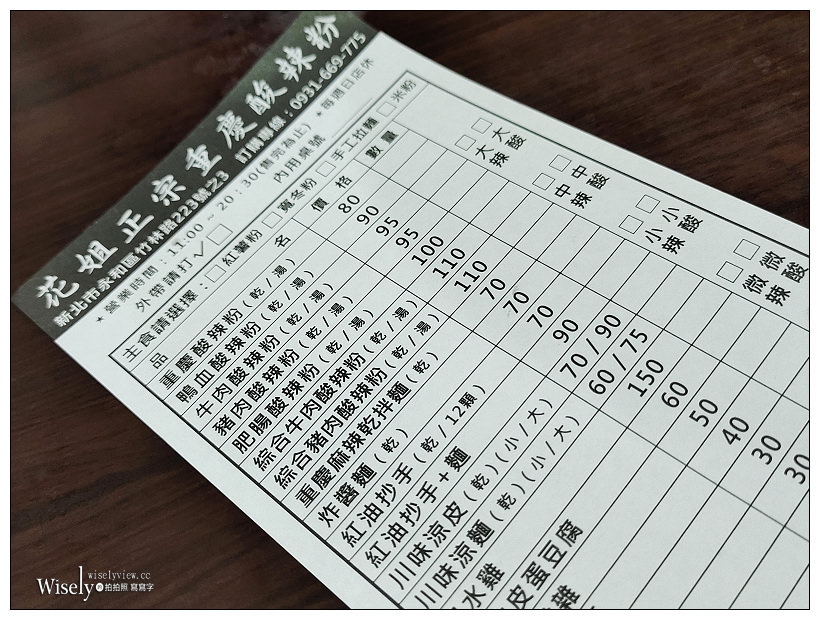 花姐正宗重慶酸辣粉
新北市永和區竹林路223號之3 訂購專線：0931-669-775
★營業時間：11:00 ~ 20:30(售完為止) ★每週日店休
外帶請打✓□ 內用桌號
主食請選擇：□紅薯粉 □寬冬粉 □手工拉麵 □米粉
品名 價格 數量
重慶酸辣粉(乾/湯) 80
鴨血酸辣粉(乾/湯) 90
牛肉酸辣粉(乾/湯) 95
豬肉酸辣粉(乾/湯) 95
肥腸酸辣粉(乾/湯) 100
綜合牛肉酸辣粉(乾/湯) 110
綜合豬肉酸辣粉(乾/湯) 110
重慶麻辣乾拌麵(乾) 70
炸醬麵(乾) 70
紅油抄手(乾/12顆) 70
紅油抄手+麵 90
川味涼皮(乾)(小/大) 70/90
川味涼麵(乾)(小/大) 60/75
水雞 150
皮蛋豆腐 60
50
40
30
30
□大酸 □中酸 □小酸 □微酸
□大辣 □中辣 □小辣 □微辣
Wisely
wiselyview.cc
拍拍照 寫寫字